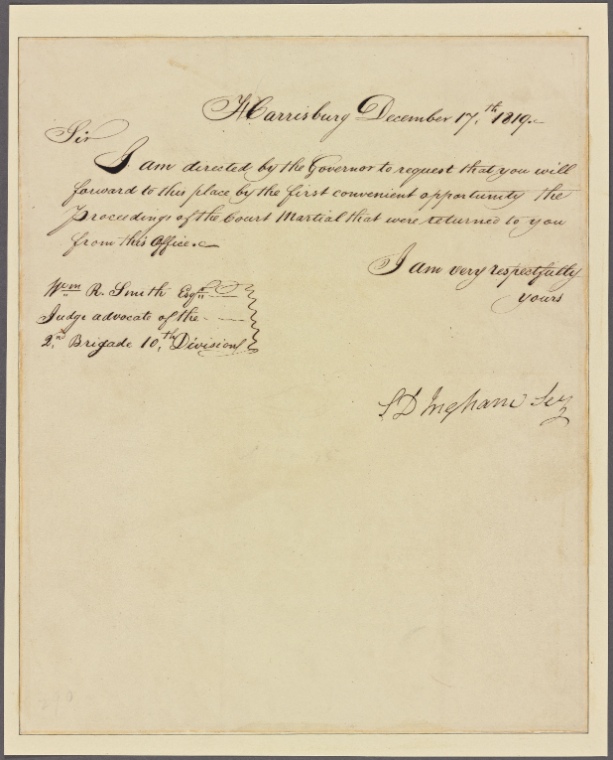 Harrisburg December 17,th 1819.
Sir
I am directed by the Governor to request that you will
forward to this place by the first convenient opportunity the
Proceedings of the Court Martial that were returned to you
from this Office.
I am very respectfully
yours
Wm R. Smith Esqr
Judge advocate of the
2,d Brigade 10,th Division
S D Ingham Secy